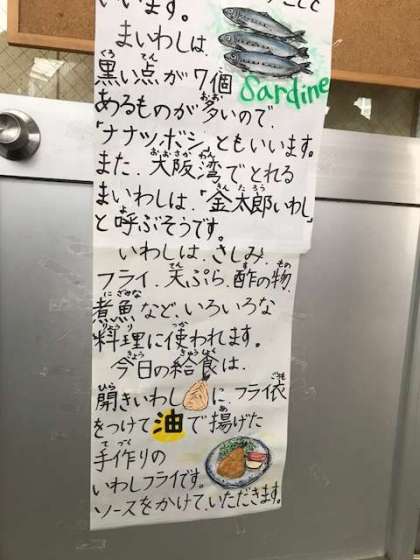 いいます。
まいわしは、
黒い点が7個
Sardine
あるものが多いので、
「ナナツボシ」ともいいます。
また、大阪湾でとれる
まいわしは、「金太郎いわし」
と呼ぶそうです。
いわしは、さしみ、
フライ、天ぷら、酢の物、
煮魚など、いろいろな
料理に使われます。
今日の給食は、
開きいわしに、フライ衣
をつけて油で揚げた
手作りの
いわしフライです。
ソースをかけて、いただきます。